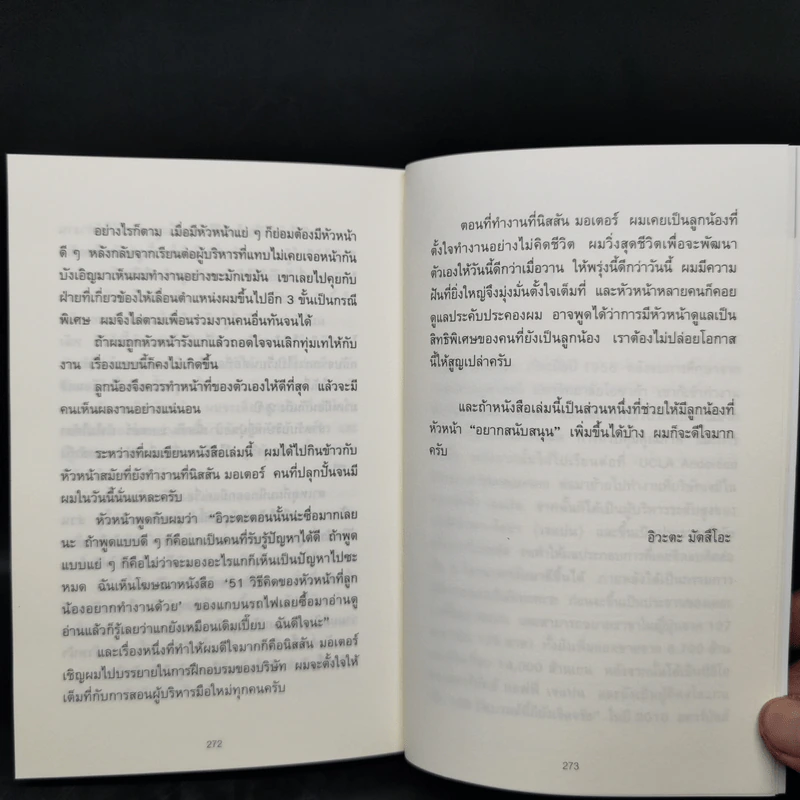 อย่างไรก็ตาม เมื่อมีหัวหน้าแย่ ๆ ก็ย่อมต้องมีหัวหน้า
ดี ๆ หลังกลับจากเรียนต่อผู้บริหารที่แทบไม่เคยเจอหน้ากัน
บังเอิญมาเห็นผมทำงานอย่างขะมักเขม้น เขาเลยไปคุยกับ
ฝ่ายที่เกี่ยวข้องให้เลื่อนตำแหน่งผมขึ้นไปอีก 3 ขั้นเป็นกรณี
พิเศษ ผมจึงไล่ตามเพื่อนร่วมงานคนอื่นทันจนได้
ถ้าผมถูกหัวหน้ารังแกแล้วถอดใจจนเลิกทุ่มเทให้กับ
งาน เรื่องแบบนี้ก็คงไม่เกิดขึ้น
ลูกน้องจึงควรทำหน้าที่ของตัวเองให้ดีที่สุด แล้วจะมี
คนเห็นผลงานอย่างแน่นอน
ระหว่างที่ผมเขียนหนังสือเล่มนี้ ผมได้ไปกินข้าวกับ
หัวหน้าสมัยที่ยังทำงานที่นิสสัน มอเตอร์ คนที่ปลุกปั้นจนมี
ผมในวันนี้นั่นแหละครับ
หัวหน้าพูดกับผมว่า “อิวะตะตอนนั้นน่ะซื่อมากเลย
นะ ถ้าพูดแบบดี ๆ ก็คือแกเป็นคนที่รับรู้ปัญหาได้ดี ถ้าพูด
แบบแย่ ๆ ก็คือไม่ว่าจะมองอะไรแกก็เห็นเป็นปัญหาไปซะ
หมด ฉันเห็นโฆษณาหนังสือ ‘51 วิธีคิดของหัวหน้าที่ลูก
น้องอยากทำงานด้วย’ ของแกบนรถไฟเลยซื้อมาอ่านดู
อ่านแล้วก็รู้เลยว่าแกยังเหมือนเดิมเปี๊ยบ ฉันดีใจนะ”
และเรื่องหนึ่งที่ทำให้ผมดีใจมากก็คือนิสสัน มอเตอร์
เชิญผมไปบรรยายในการฝึกอบรมของบริษัท ผมจะตั้งใจให้
เต็มที่กับการสอนผู้บริหารมือใหม่ทุกคนครับ
272
ตอนที่ทำงานที่นิสสัน มอเตอร์ ผมเคยเป็นลูกน้องที่
ตั้งใจทำงานอย่างไม่คิดชีวิต ผมวิ่งสุดชีวิตเพื่อจะพัฒนา
ตัวเองให้วันนี้ดีกว่าเมื่อวาน ให้พรุ่งนี้ดีกว่าวันนี้ ผมมีความ
ฝันที่ยิ่งใหญ่จึงมุ่งมั่นตั้งใจเต็มที่ และหัวหน้าหลายคนก็คอย
ดูแลประคับประคองผม อาจพูดได้ว่าการมีหัวหน้าดูแลเป็น
สิทธิพิเศษของคนที่ยังเป็นลูกน้อง เราต้องไม่ปล่อยโอกาส
นี้ให้สูญเปล่าครับ
และถ้าหนังสือเล่มนี้เป็นส่วนหนึ่งที่ช่วยให้มีลูกน้องที่
หัวหน้า “อยากสนับสนุน” เพิ่มขึ้นได้บ้าง ผมก็จะดีใจมาก
ครับ
อิวะตะ มัตสึโอะ
273